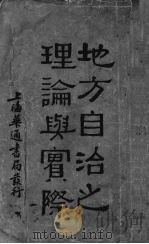 地方自治之
理論與實際
上海華通書局發行